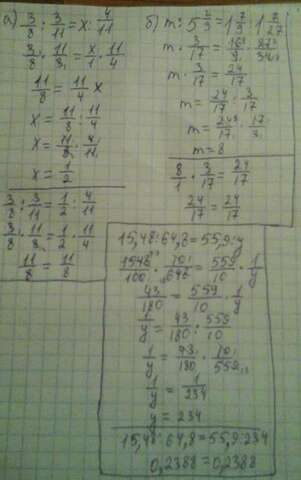 а) 3/8 : 3/11 = x : 4/11
3/8 · 11/3 = x/1 · 11/4
11/8 = 11/4 x
x = 11/8 : 11/4
x = 11/8 · 4/11
x = 1/2
3/8 : 3/11 = 1/2 : 4/11
3/8 · 11/3 = 1/2 · 11/4
11/8 = 11/8
б) m : 5 2/3 = 1 7/9 : 1 7/27
m · 3/17 = 16/9 · 27/34
m · 3/17 = 24/17
m = 24/17 : 3/17
m = 24/17 · 17/3
m = 8
8/1 · 3/17 = 24/17
24/17 = 24/17
15,48 : 64,8 = 55,9 : y
1548/100 · 10/648 = 559/10 · 1/y
43/180 = 559/10 · 1/y
1/y = 43/180 : 559/10
1/y = 43/180 · 10/559
1/y = 1/234
y = 234
15,48 : 64,8 = 55,9 : 234
0,2388 = 0,2388